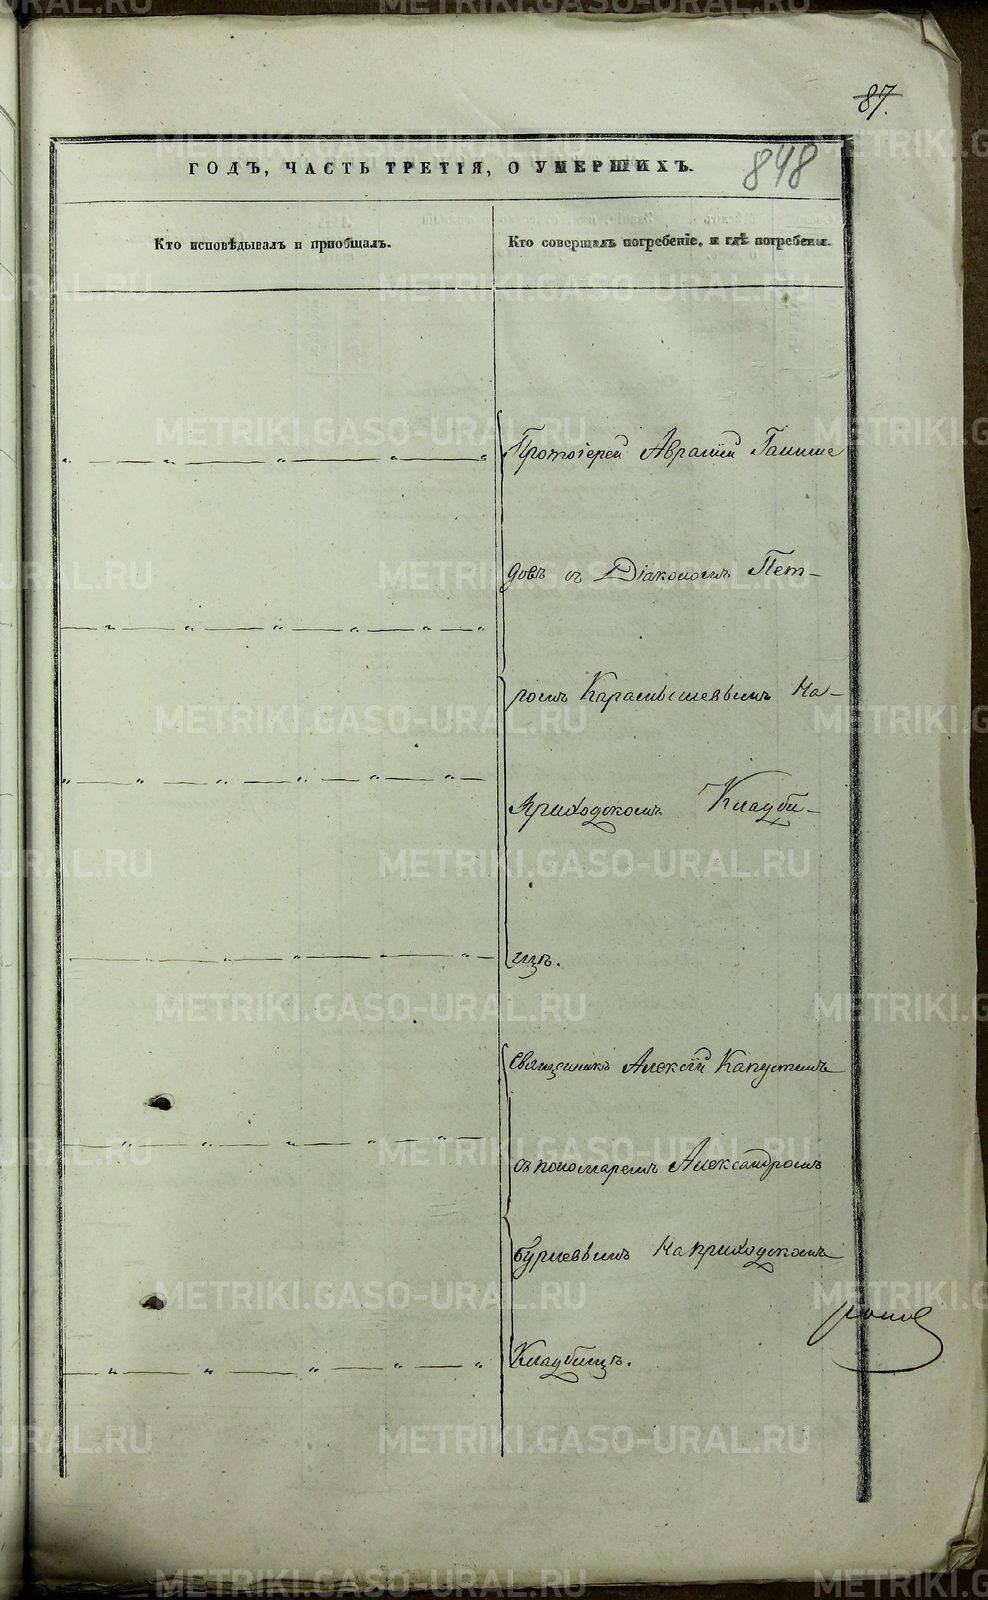 87.
848
ГОДЪ, ЧАСТЬ ТРЕТІЯ, О УМЕРШИХЪ.
Кто исповѣдывалъ и пріобщалъ.
Кто совершалъ погребеніе, и гдѣ погребены.
Протоіерей Аврамій
довъ съ Діакономъ Пет-
ромъ Карамышевымъ На-
Приходскомъ Кладби-
щѣ.
Священникъ Алексій Капустинъ
съ пономаремъ Александромъ
Бурневымъ На приходскомъ
Кладбищѣ.
METRIKI.GASO-URAL.RU